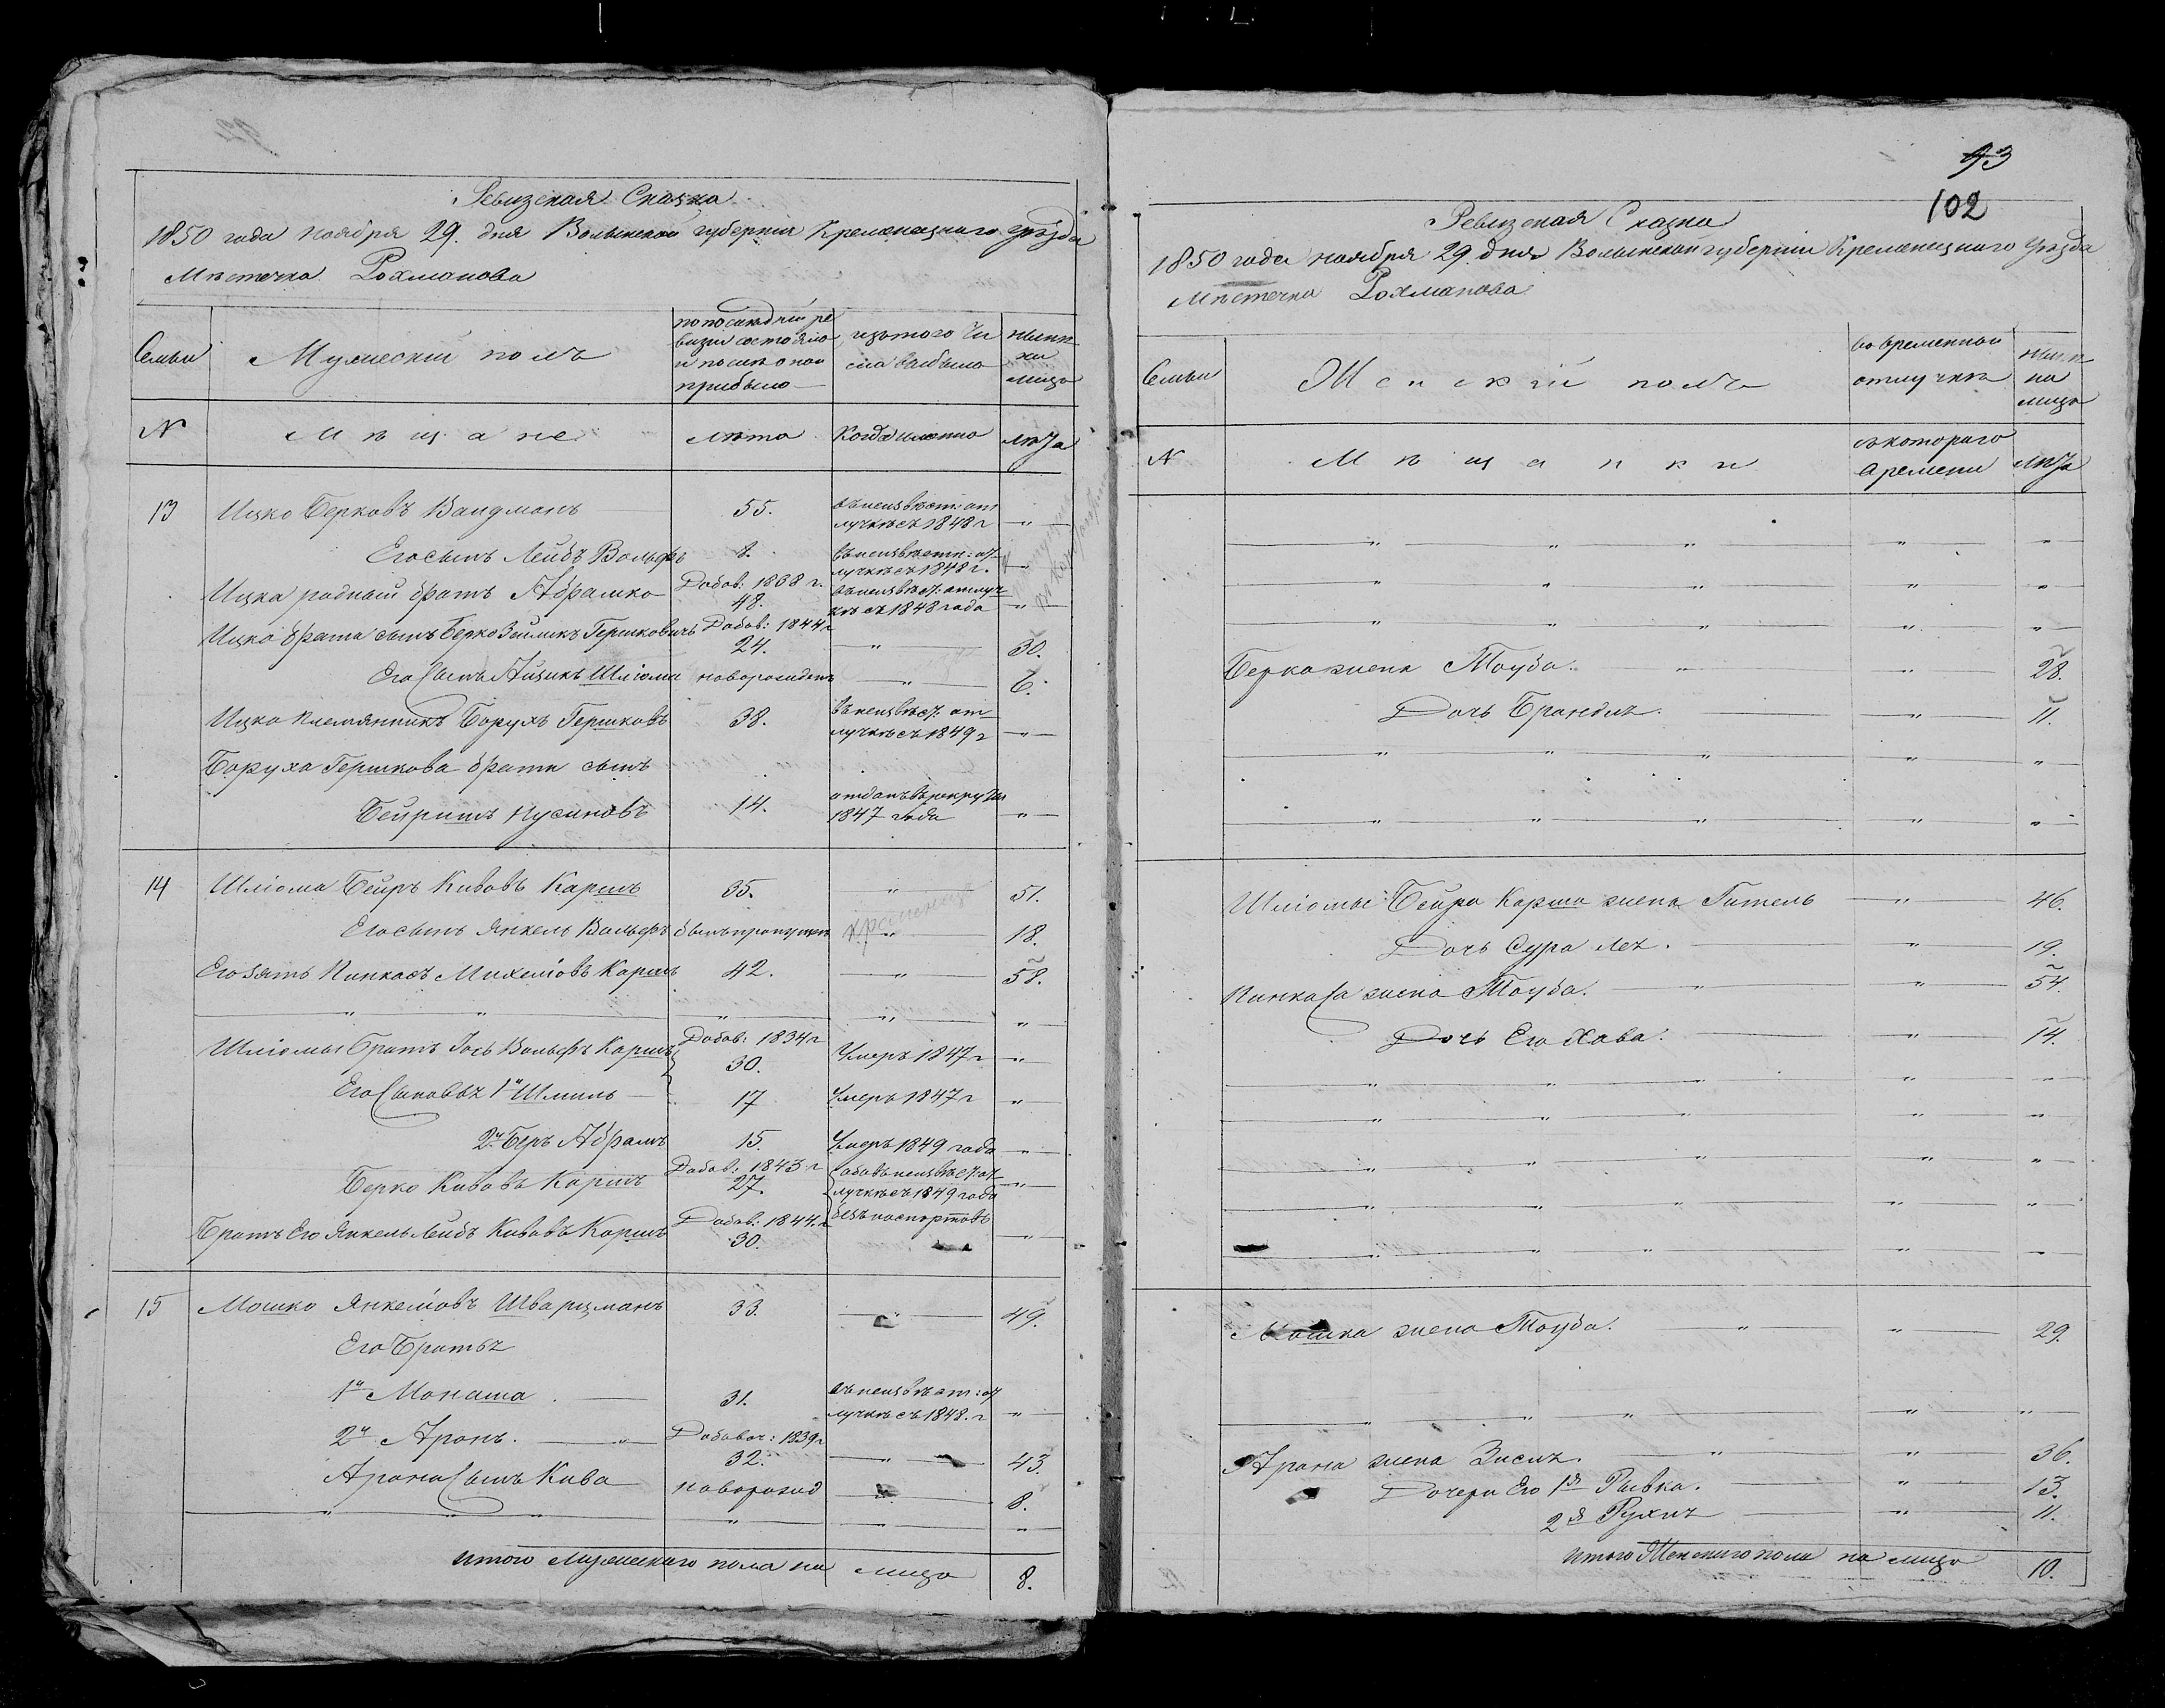 Ревизская Сказка
1850 года ноября 29. дня Волынской губернии Кременецкого уѣзда
Мѣстечка Рохманова
Семьи
Мужеский полъ
по последней ре
визии состояло
и после оной
прибыло
изъ того чи
сла выбыло
нынѣ
на
лицо
N
Мѣщане
лѣта
Когда именно
лѣта
13
Ицко Берковъ Вандманъ
55.
въ неизвѣстн: от
лучкѣ съ 1848 г
"
Его сынъ Лейбъ Вольфъ
8.
въ неизвѣстн: от
лучкѣ съ 1848 г.
Ицка родный братъ Абрамко
Добав: 1838 г.
48.
въ неизвѣст: отлуч
кѣ съ 1848 года
"
Ицка брата сынъ Берко Зейликъ Гершковичъ
Добав: 1844 г
24.
"
30.
Его Сынъ Айзикъ Шлиома
новорожденъ
"
6.
Ицка племянникъ Борухъ Гершковъ
38.
въ неизвѣст: от
лучкѣ съ 1849 г
"
Боруха Гершкова брата сынъ
Бейришъ Нусиновъ
14.
отданъ въ рекруты
1847 года
"
14
Шліома Бейръ Кивовъ Каршъ
35.
"
51.
Его сынъ Янкель Вольфъ
былъ пропущен
"
18.
Его зять Пинкасъ Михелiовъ Каршъ
42.
"
58.
" " " " "
Шліомы братъ Іось Вольфъ Каршъ
Добав: 1834 г
30.
Умеръ 1847 г
"
Его Сыновья 1й Шмиль
17
Умеръ 1847 г
"
2й Беръ Абрамъ
15.
Умеръ 1849 года
"
Берко Кивовъ Каршъ
Добав: 1843 г
27.
оба въ неизвѣст: от
лучкѣ съ 1849 года
безъ паспортовъ
"
Братъ Его Янкель Лейбъ Кивовъ Каршъ
Добав: 1844. г
30.
"
15
Мошко Янкелiовъ Шварцманъ
33.
"
49.
Его Братья
1й Монаша
31.
въ неизвѣстн: от
лучкѣ съ 1848. г
"
2й Аронъ.
Добавоч: 1839 г
32.
"
43.
Арона Сынъ Кива
новорожд
"
8.
" " " " " "
Итого Мужеского пола на лицо
8.
93
102
Ревизская Сказка
1850 года ноября 29. дня Волынской губернии Кременецкого уѣзда
Мѣстечка Рохманова
Семьи
Женскій полъ
во временной
отлучкѣ
нынѣ
на
лицо
N
Мѣщанки
съ котораго
времени
лѣта
" " " " "
" " " " "
" " " " "
Берка жена Тоуба.
"
"
28.
Дочь Брандля.
"
11.
" " " " "
" " " " "
Шліомы Бейра Карша жена Гитель
"
46.
Дочь Сура Лея.
"
19.
Пинкаса жена Тоуба.
"
"
54.
Дочь Его Хава.
"
14.
" " " " "
" " " " "
" " " " "
" " " " "
" " " " "
Мошка жена Тоуба.
"
"
29.
" " " " "
Арона жена Зися.
"
"
36.
Дочери Его 1я Рывка.
"
13.
2я Рухля
"
11.
Итого Женского пола на лицо
10.